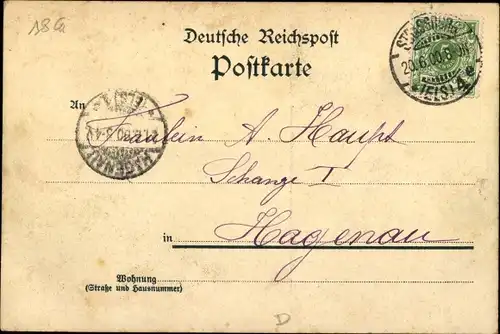 18 G
Deutsche Reichspost
Postkarte
STRASSBURG
20.6.00.
(ELS) 4 e
An
Fräulein A. Haupt
HAGENAU
(ELS)
Schanze I
in
Hagenau
Wohnung
(Straße und Hausnummer)
D